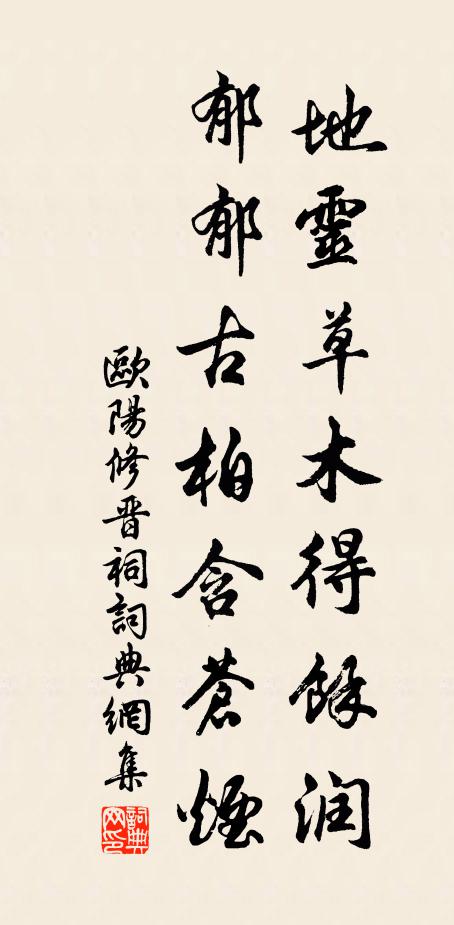 地靈草木得餘润
郁郁古柏含蒼煙
歐陽修晋祠詞典網集
詞典网印